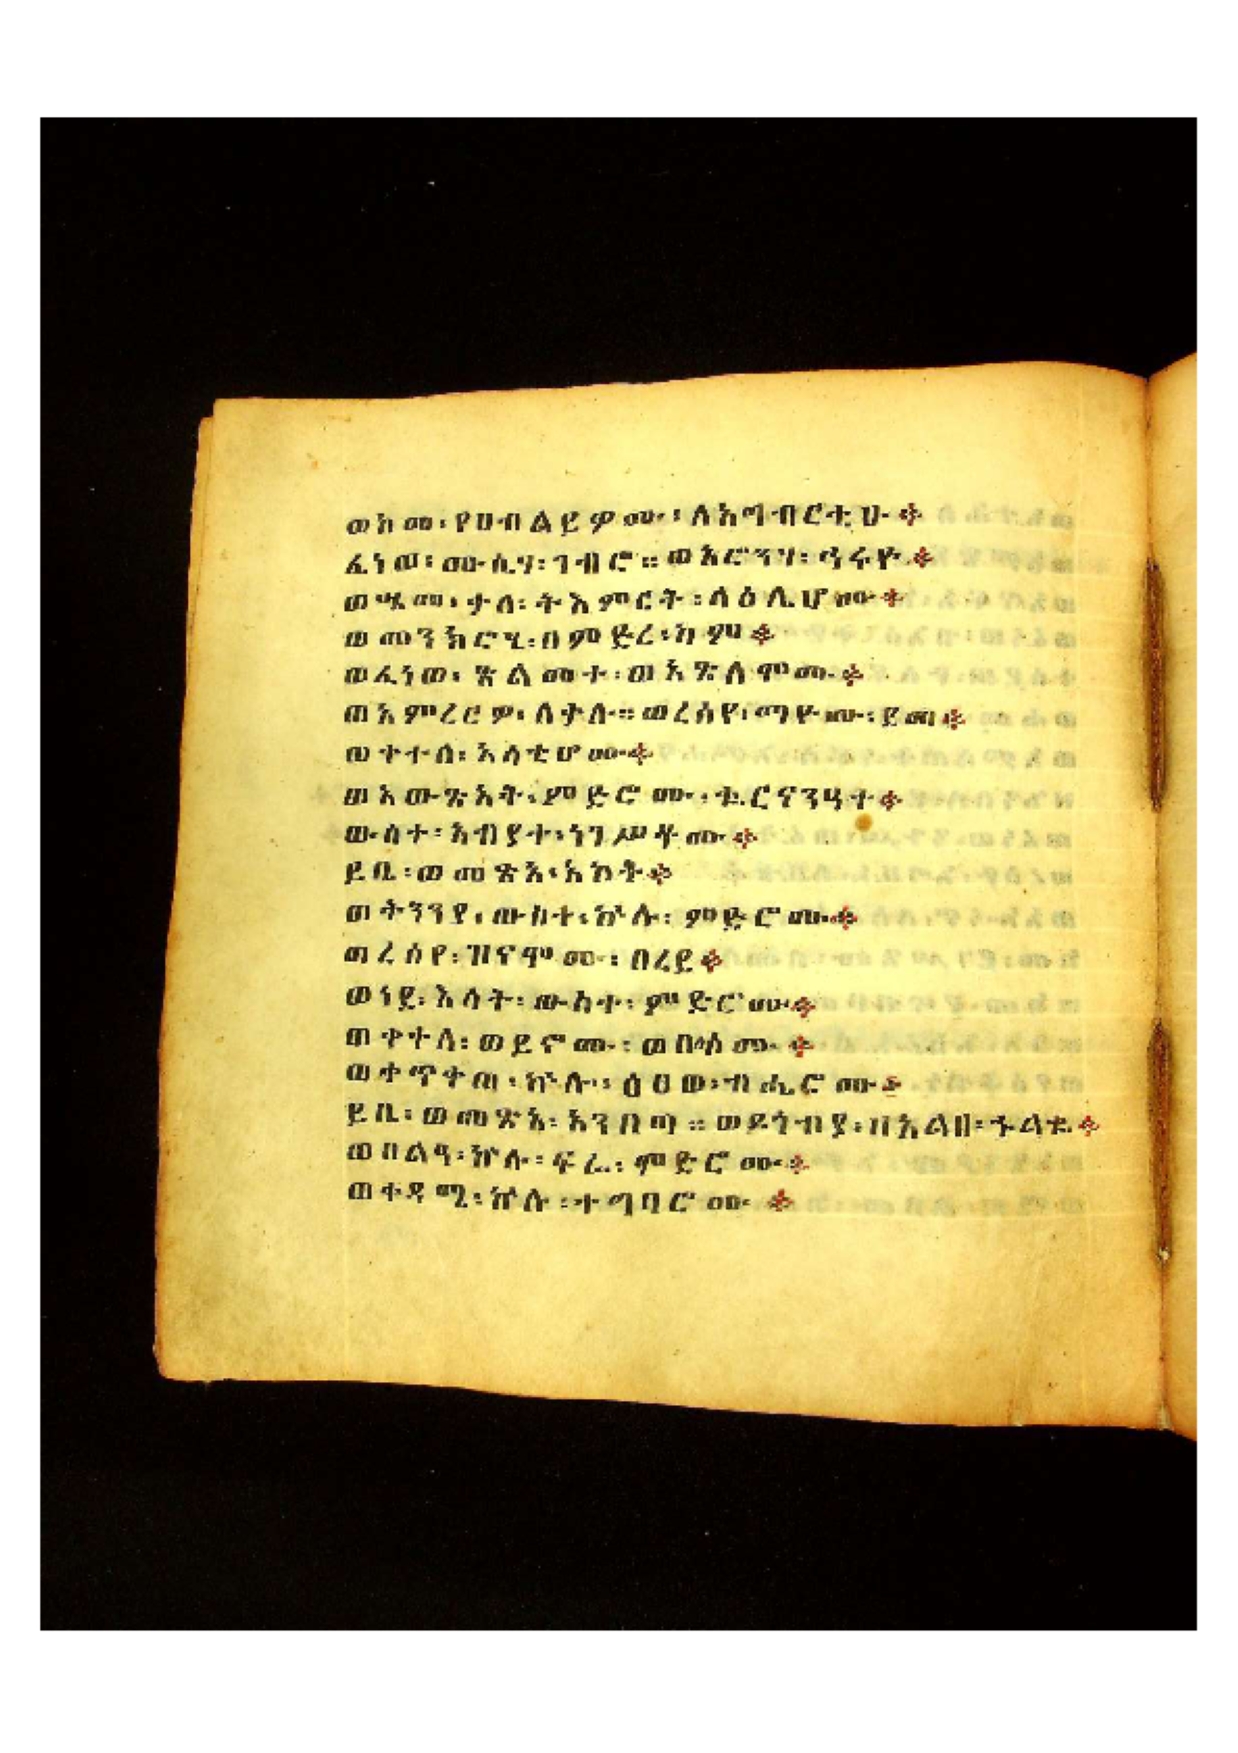 ወከመ፡ የሀብልይዎሙ፡ ለአግብርቲሁ።
ፈነወ፡ ሙሴሃ፡ ገብሮ። ወአሮንሃ፡ ኅሩዮ።
ወሤመ፡ ቃለ፡ ትእምርት፡ ላዕሌሆሙ።
ወመንክሮሂ፡ በምድረ፡ ካም።
ወፈነወ፡ ጽልመተ፡ ወአጽለሞሙ።
ወአምረርዎ፡ ለቃሉ። ወረሰየ፡ ማዮሙ፡ ደመ።
ወቀተለ፡ አሳቲሆሙ።
ወአውጽአት፡ ምድሮሙ፡ ቈርናንዓተ።
ውስተ፡ አብያተ፡ ነገሥቶሙ።
ይቤ፡ ወመጽአ፡ አኮት።
ወትንንያ፡ ውስተ፡ ኵሉ፡ ምድሮሙ።
ወረሰየ፡ ዝናሞሙ፡ በረደ።
ወነደ፡ እሳት፡ ውስተ፡ ምድሮሙ።
ወቀተለ፡ ወይኖሙ፡ ወበለሶሙ።
ወቀጥቀጠ፡ ኵሉ፡ ዕፀወ፡ ብሔሮሙ።
ይቤ፡ ወመጽአ፡ አንበጣ። ወደጎብያ፡ ዘአልቦ፡ ኍልቈ።
ወበልዓ፡ ኵሉ፡ ፍሬ፡ ምድሮሙ።
ወቀዳሜ፡ ኵሉ፡ ተግባሮሙ።